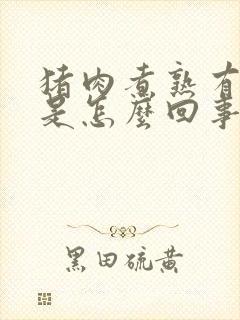 猪肉煮熟有
是怎麼回事
黑田硫黄